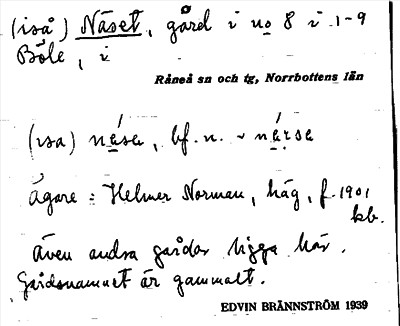 (iså) Näset, gård i no 8 i 1-9
Böle, i
Råneå sn och tg, Norrbottens län
(isa) näsa, bf. n. - närsa
Ägare: Helmer Norman, häg, f. 1901
kb.
Även andra gårdar ligga här.
Gårdsnamnet är gammalt.
EDVIN BRÄNNSTRÖM 1939